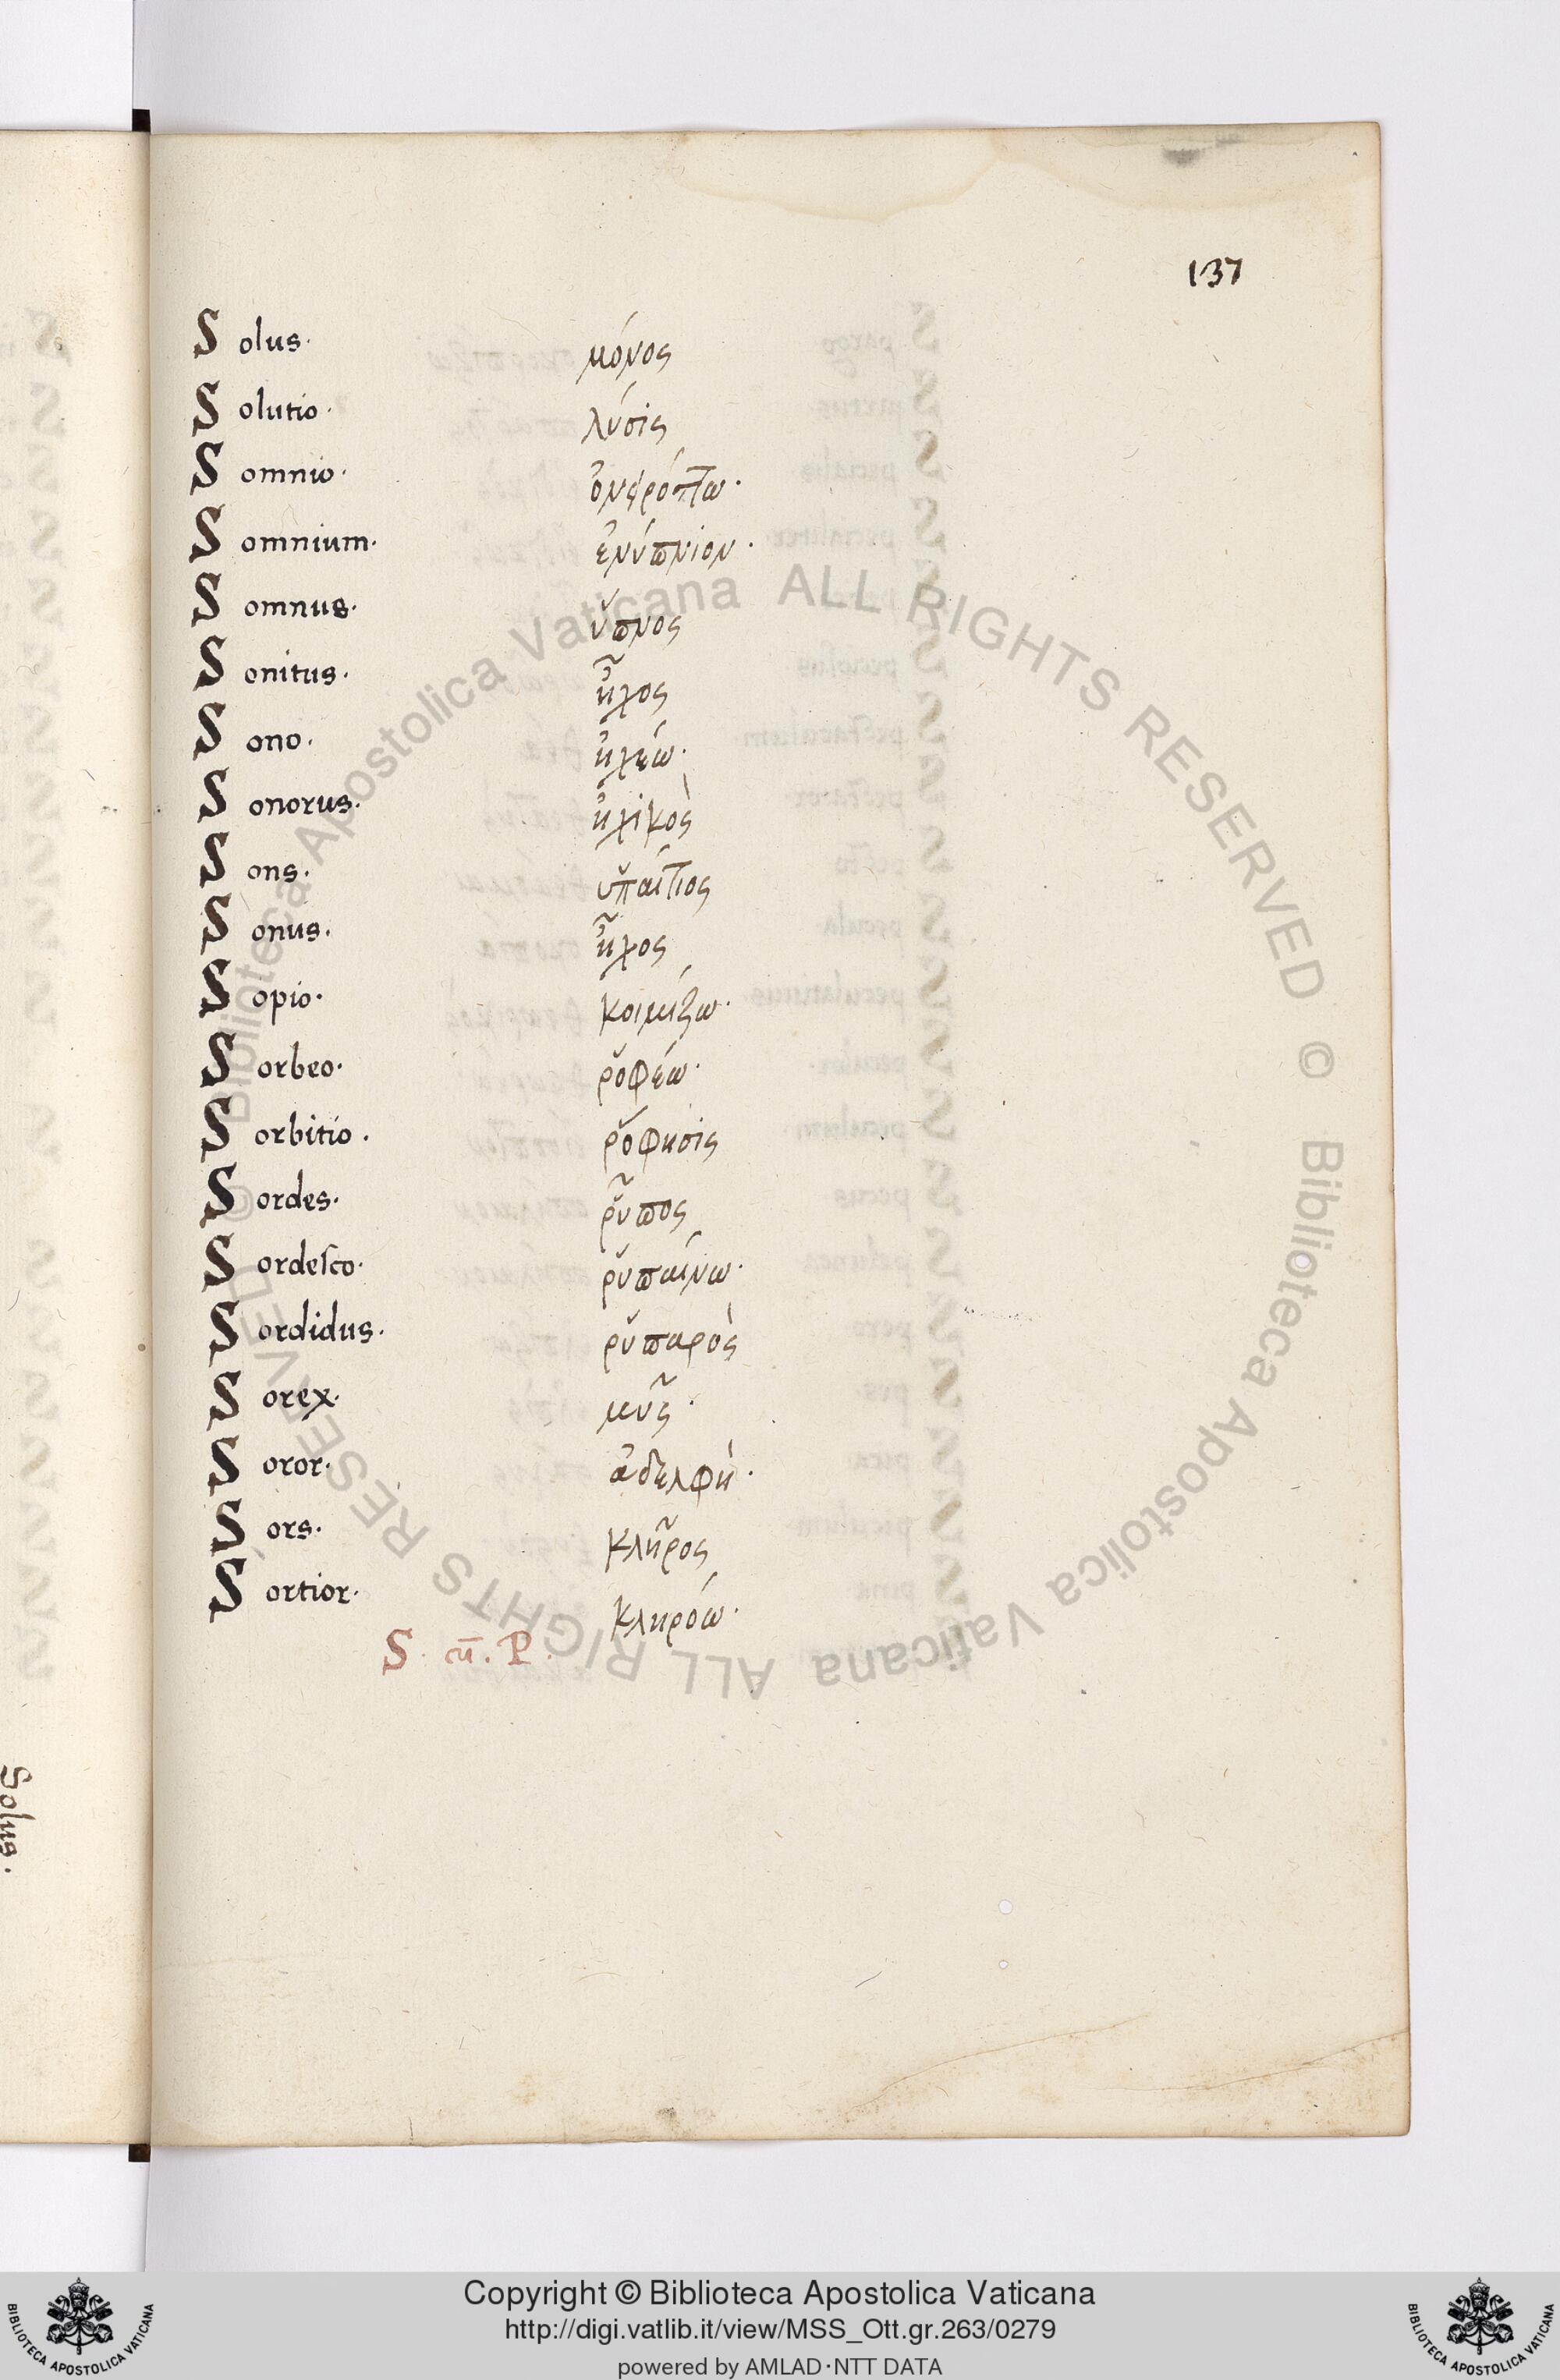 137
Solus· μόνος
Solutio· λύσις
Somnio· ὀνειρόττω·
Somnium· ἐνύπνιον·
Somnus· ὕπνος
Sonitus· ἦχος
Sono· ἠχέω·
Sonorus· ἠχικὸς
Sons· ὑπαίτιος
Sonus· ἦχος
Sopio· κοιμίζω·
Sorbeo· ῥοφέω·
Sorbitio· ῥόφησις
Sordes· ῥῦπος
Sordesco· ῥυπαίνω·
Sordidus· ῥυπαρὸς
Sorex· μῦς·
Soror· ἀδελφὴ·
Sors· κλῆρος
Sortior· κληρόω·
S. cū. P.
Solus.
© Biblioteca Apostolica Vaticana ALL RIGHTS RESERVED
© Biblioteca Apostolica Vaticana ALL RIGHTS RESERVED
Copyright © Biblioteca Apostolica Vaticana
http://digi.vatlib.it/view/MSS_Ott.gr.263/0279
powered by AMLAD·NTT DATA
BIBLIOTECA APOSTOLICA VATICANA
BIBLIOTECA APOSTOLICA VATICANA